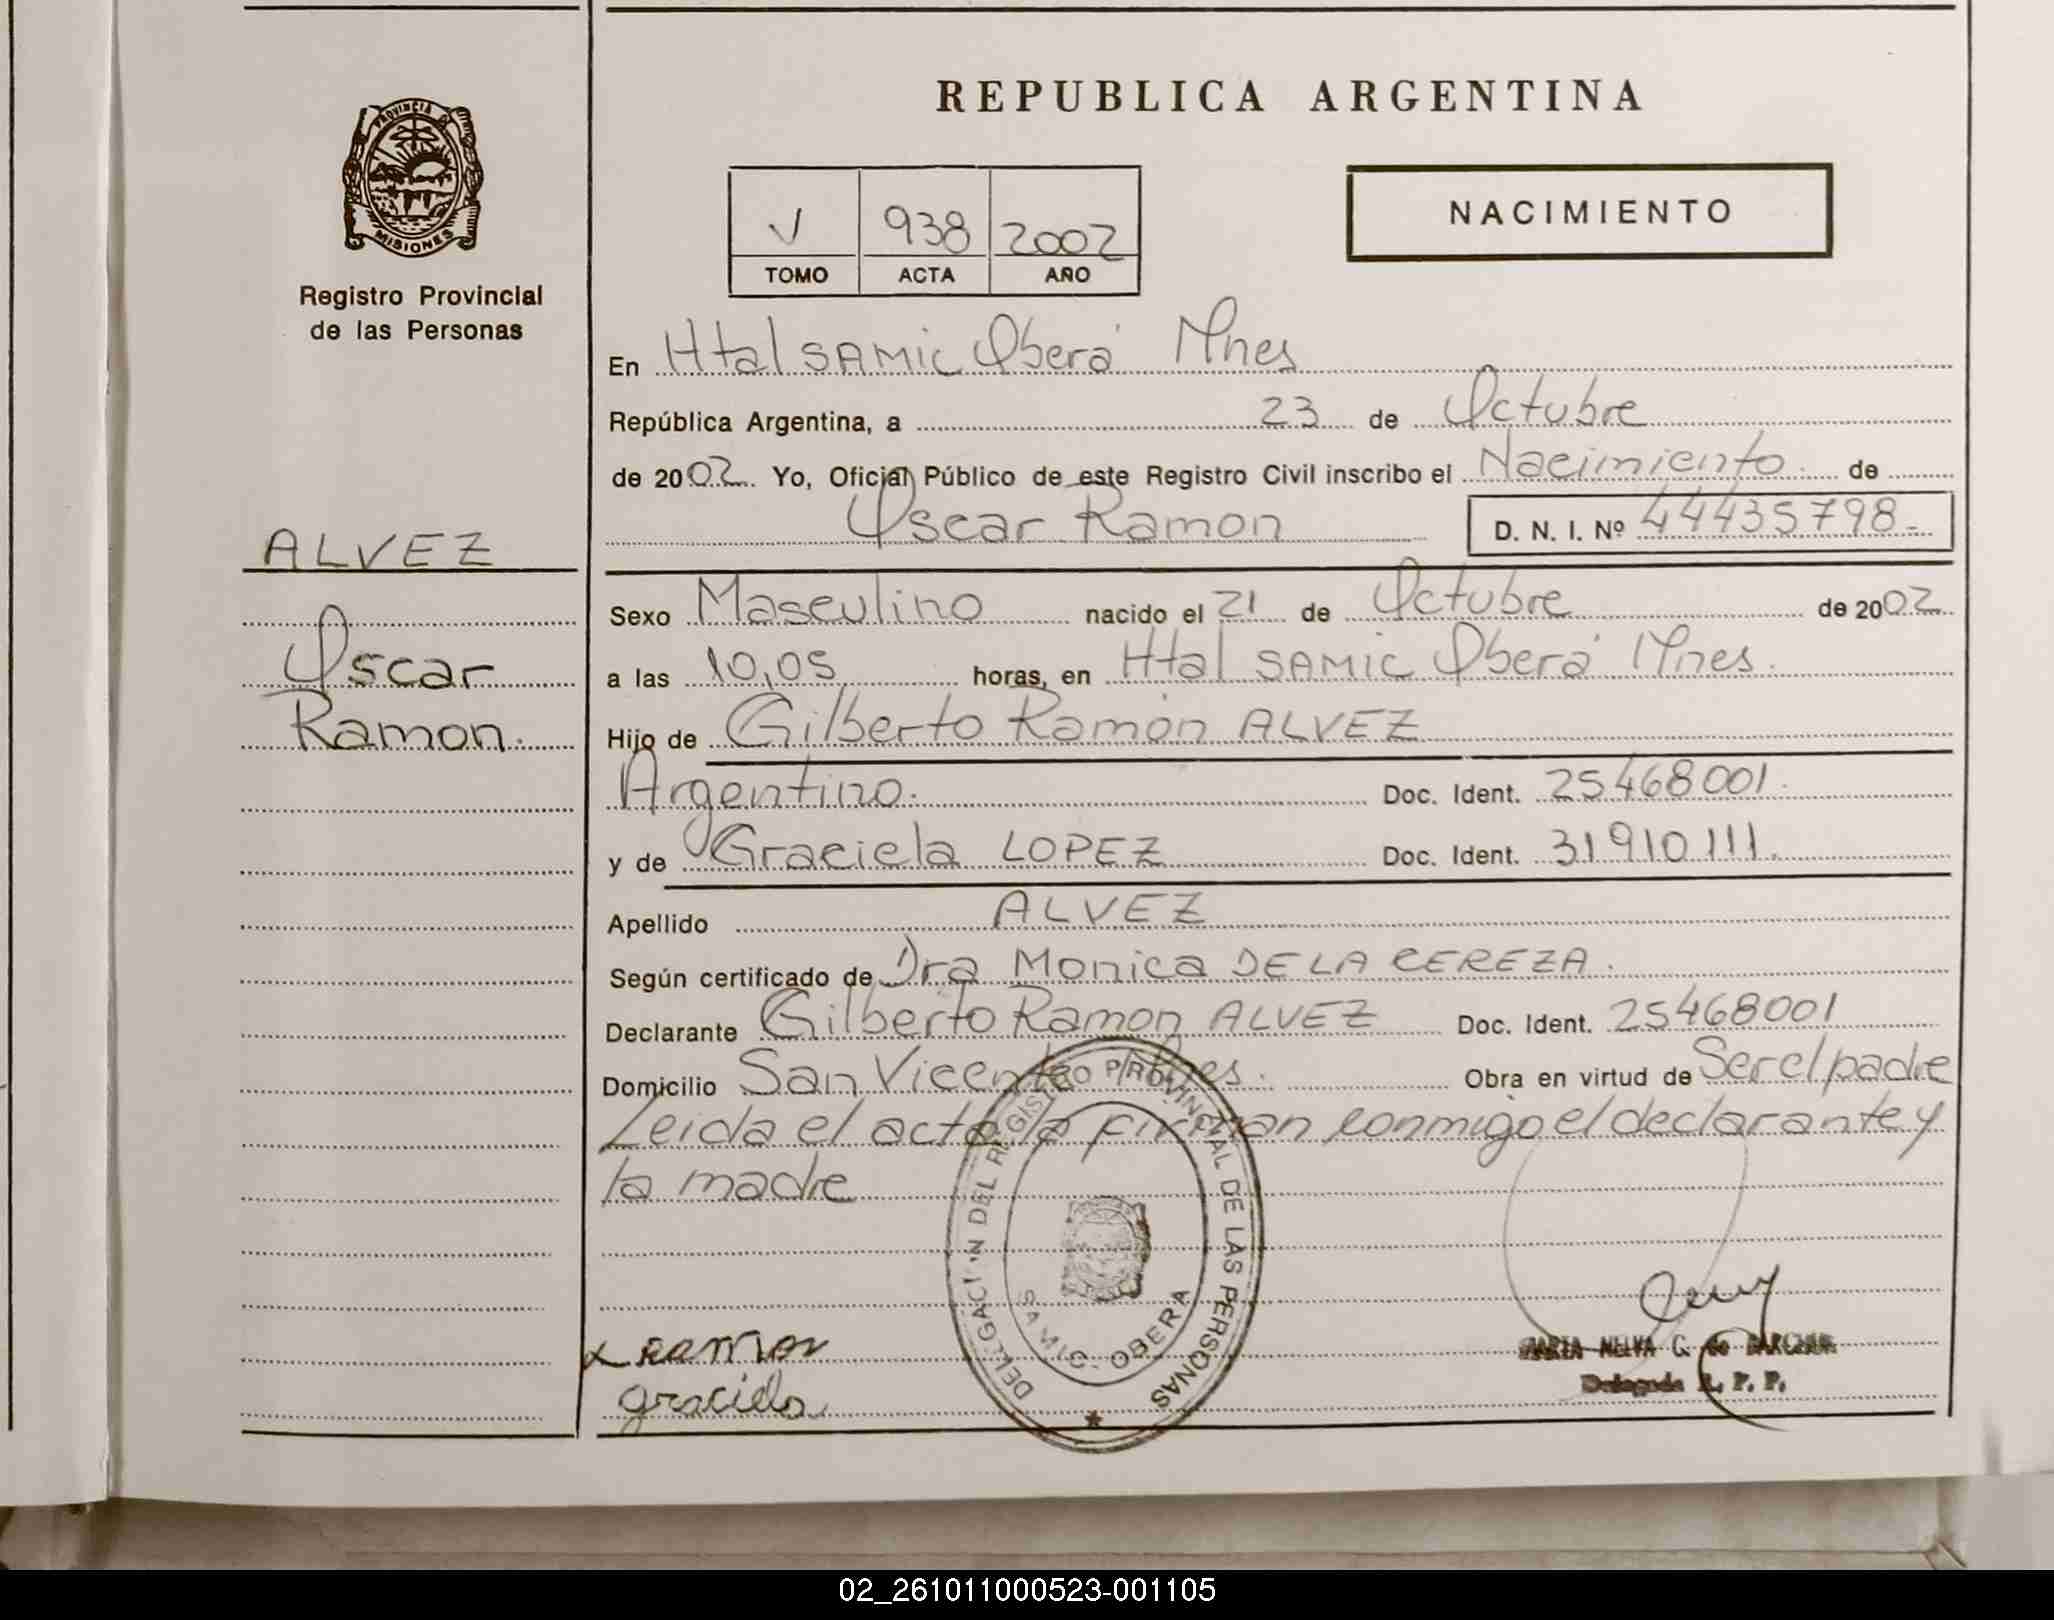 REPUBLICA ARGENTINA
PROVINCIA DE
MISIONES
Registro Provincial
de las Personas
V 938 2002
TOMO ACTA AÑO
NACIMIENTO
En Htal SAMIC Oberá Mnes
República Argentina, a 23 de Octubre
de 2002. Yo, Oficial Público de este Registro Civil inscribo el Nacimiento de
Oscar Ramon D. N. I. Nº 44435798-
ALVEZ
Oscar
Ramon.
Sexo Masculino nacido el 21 de Octubre de 2002
a las 10,05 horas, en Htal SAMIC Oberá Mnes.
Hijo de Gilberto Ramón ALVEZ
Argentino. Doc. Ident. 25468001.
y de Graciela LOPEZ Doc. Ident. 31910111.
Apellido ALVEZ
Según certificado de Dra Monica DE LA CEREZA.
Declarante Gilberto Ramon ALVEZ Doc. Ident. 25468001
Domicilio San Vicente Mnes. Obra en virtud de Ser el padre
Leida el acta la firman conmigo el declarante y
la madre
DELEGACION DEL REGISTRO PROVINCIAL DE LAS PERSONAS
SAMIC - OBERA
Ramon
graciela
MARIA NELVA C. de
Delegada R. P. P.
02_261011000523-001105